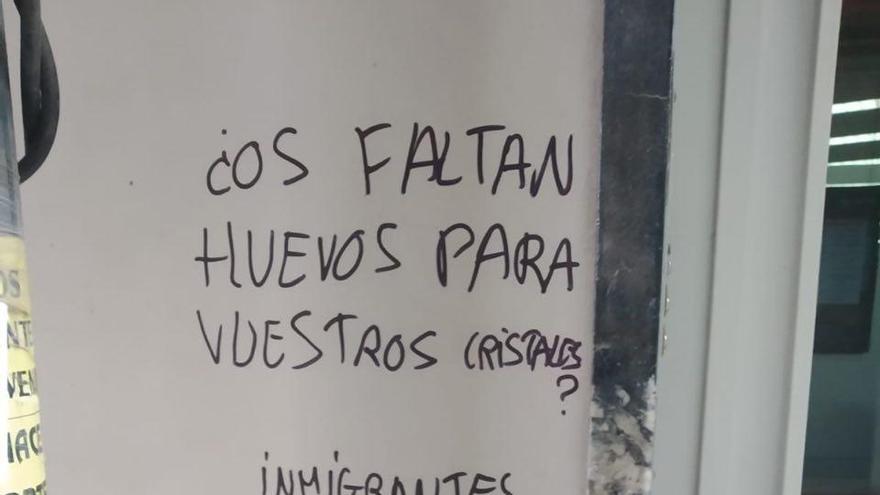 ¿OS FALTAN
HUEVOS PARA
VUESTROS CRISTALES
?
INMIGRANTES